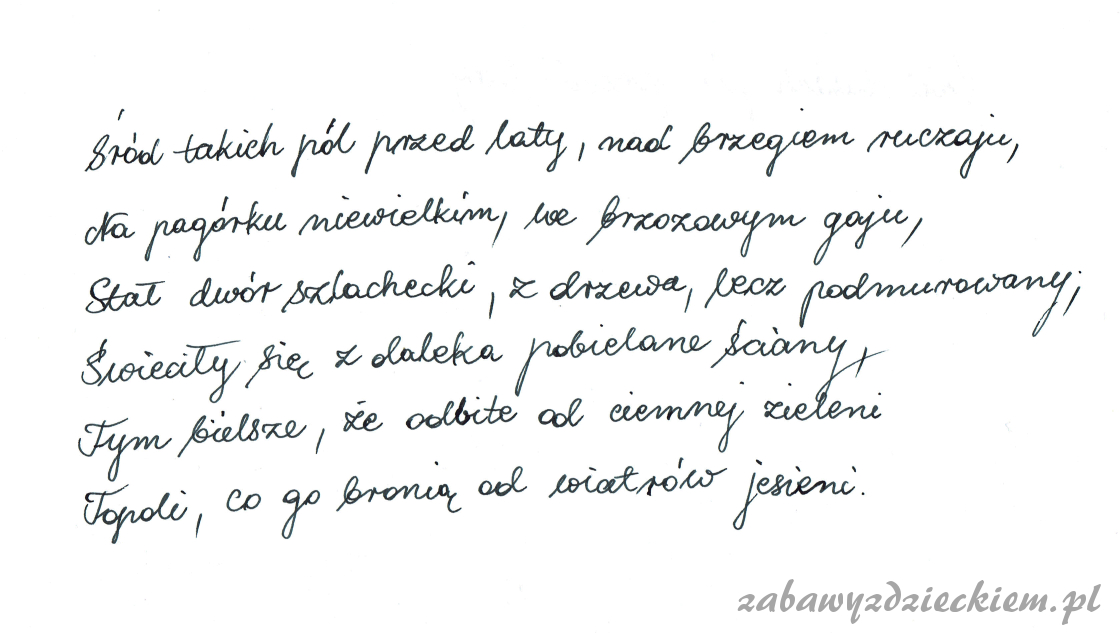 Śród takich pól przed laty, nad brzegiem ruczaju,
Na pagórku niewielkim, we brzozowym gaju,
Stał dwór szlachecki, z drzewa, lecz podmurowany;
Świeciły się z daleka pobielane ściany,
Tym bielsze, że odbite od ciemnej zieleni
Topoli, co go bronią od wiatrów jesieni.
zabawyzdzieckiem.pl